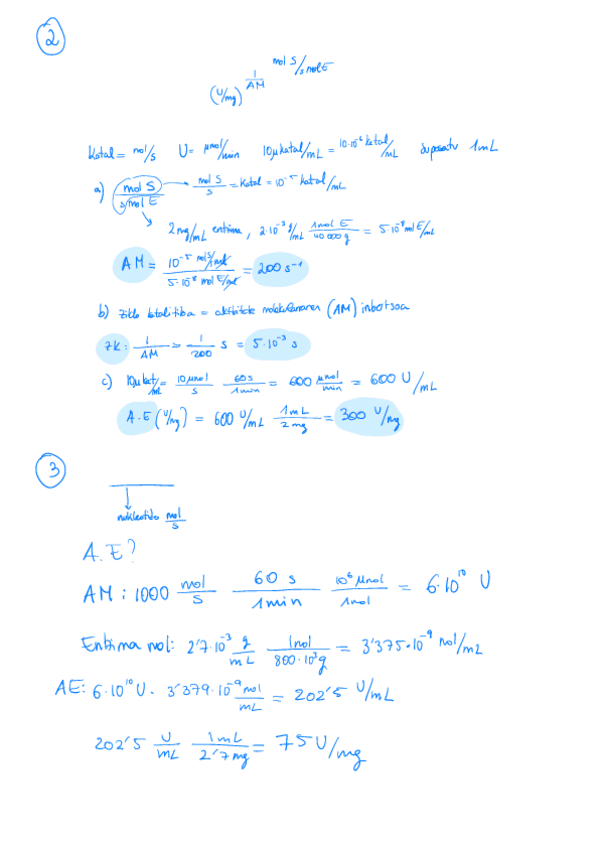 2
(U/mg) 1/AM mol S/s molE
Katal = mol/s U = μmol/min 10μkatal/mL = 10·10⁻⁶ katal/mL suposatu 1mL
a) mol S / s/mol E → mol S/s = Katal = 10⁻⁵ katal/mL
2mg/mL entzima, 2·10⁻³ g/mL 1mol E/40 000 g = 5·10⁻⁸ mol E/mL
AM = 10⁻⁵ mol S/s/mL / 5·10⁻⁸ mol E/mL = 200 s⁻¹
b) Ziklo katalitikoa = aktibitate molekularraren (AM) inbertsoa
ZK: 1/AM = 1/200 s = 5·10⁻³ s
c) 10μkat/mL = 10μmol/s 60s/1min = 600 μmol/min = 600 U/mL
A.E (U/mg) = 600 U/mL 1mL/2mg = 300 U/mg
3
nukleotido mol/s
A.E?
AM: 1000 mol/s 60 s/1min 10⁶ μmol/1mol = 6·10¹⁰ U
Entzima mol: 2'7·10⁻³ g/mL 1mol/800·10³g = 3'375·10⁻⁹ mol/mL
AE: 6·10¹⁰U · 3'379·10⁻⁹ mol/mL = 202'5 U/mL
202'5 U/mL 1mL/2'7mg = 75 U/mg